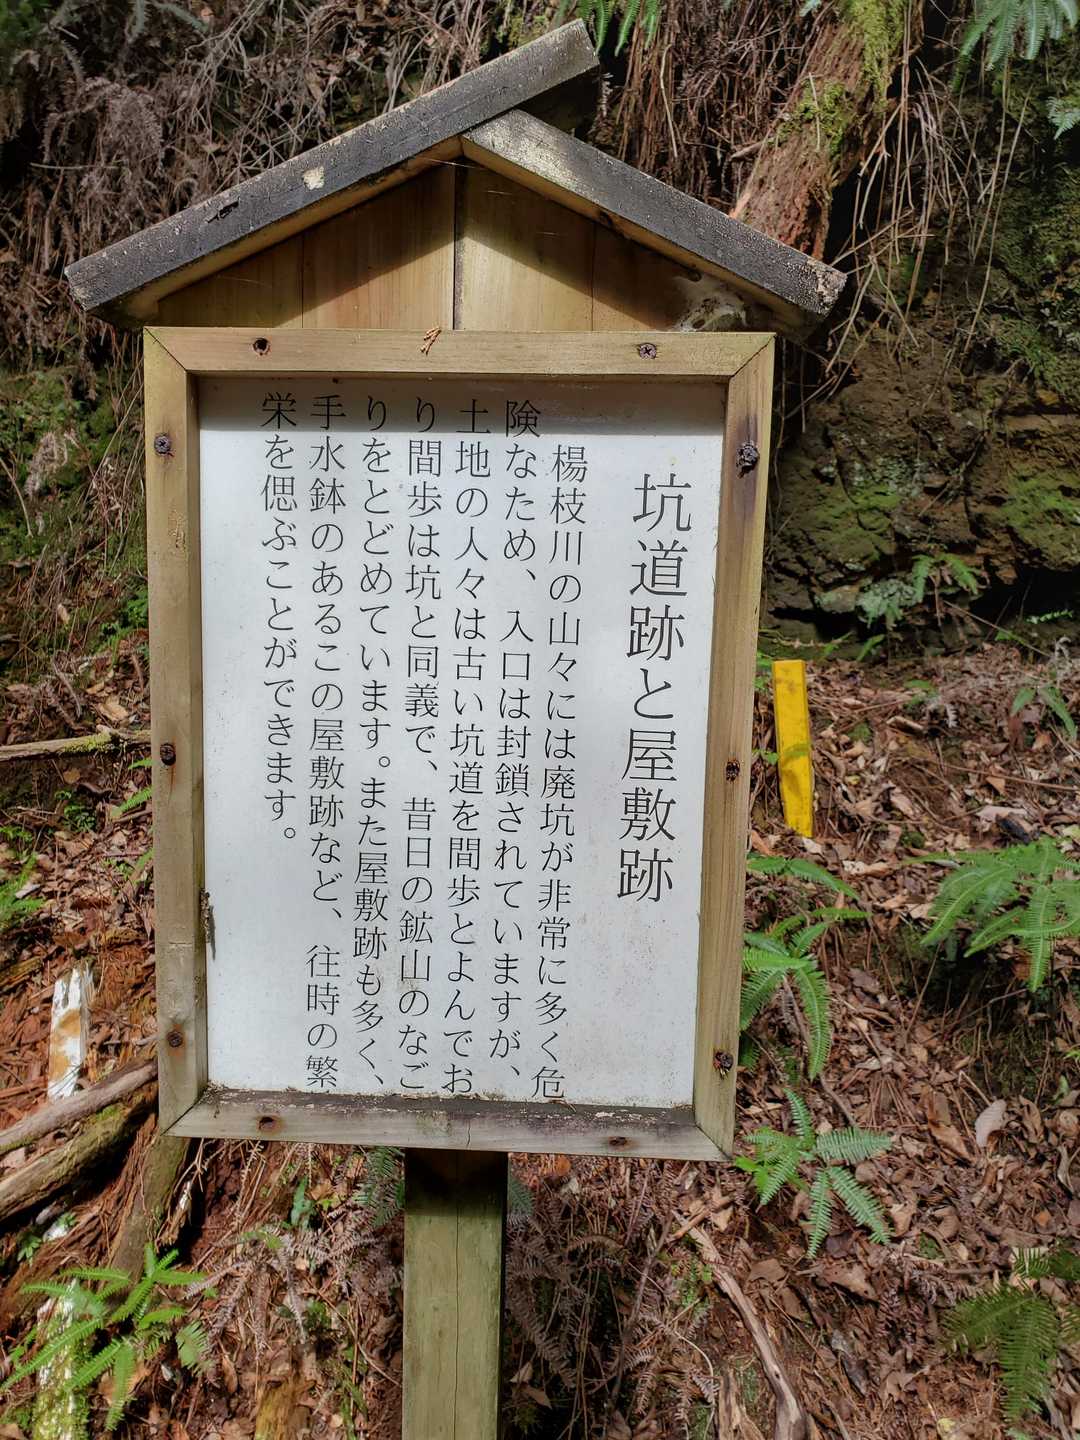 坑道跡と屋敷跡
楊枝川の山々には廃坑が非常に多く危
険なため、入口は封鎖されていますが、
土地の人々は古い坑道を間歩とよんでお
り間歩は坑と同義で、昔日の鉱山のなご
りをとどめています。また屋敷跡も多く、
手水鉢のあるこの屋敷跡など、往時の繁
栄を偲ぶことができます。